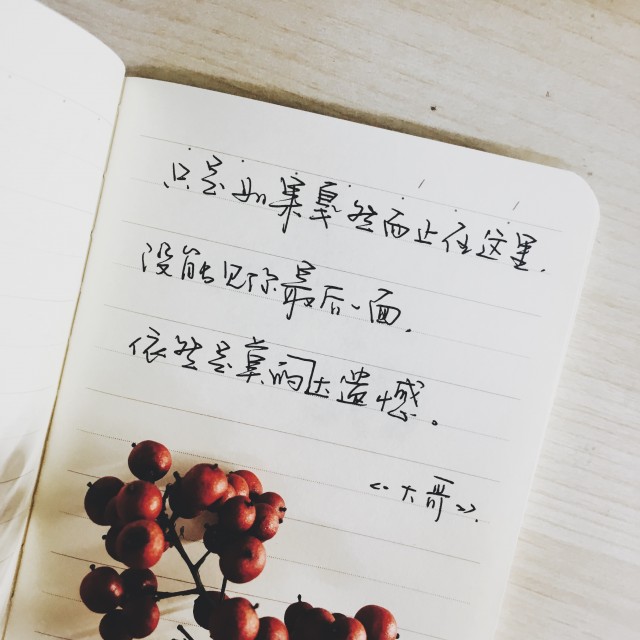 只是如果戛然而止在这里.
没能见你最后一面.
依然是莫大遗憾。
《大哥》.